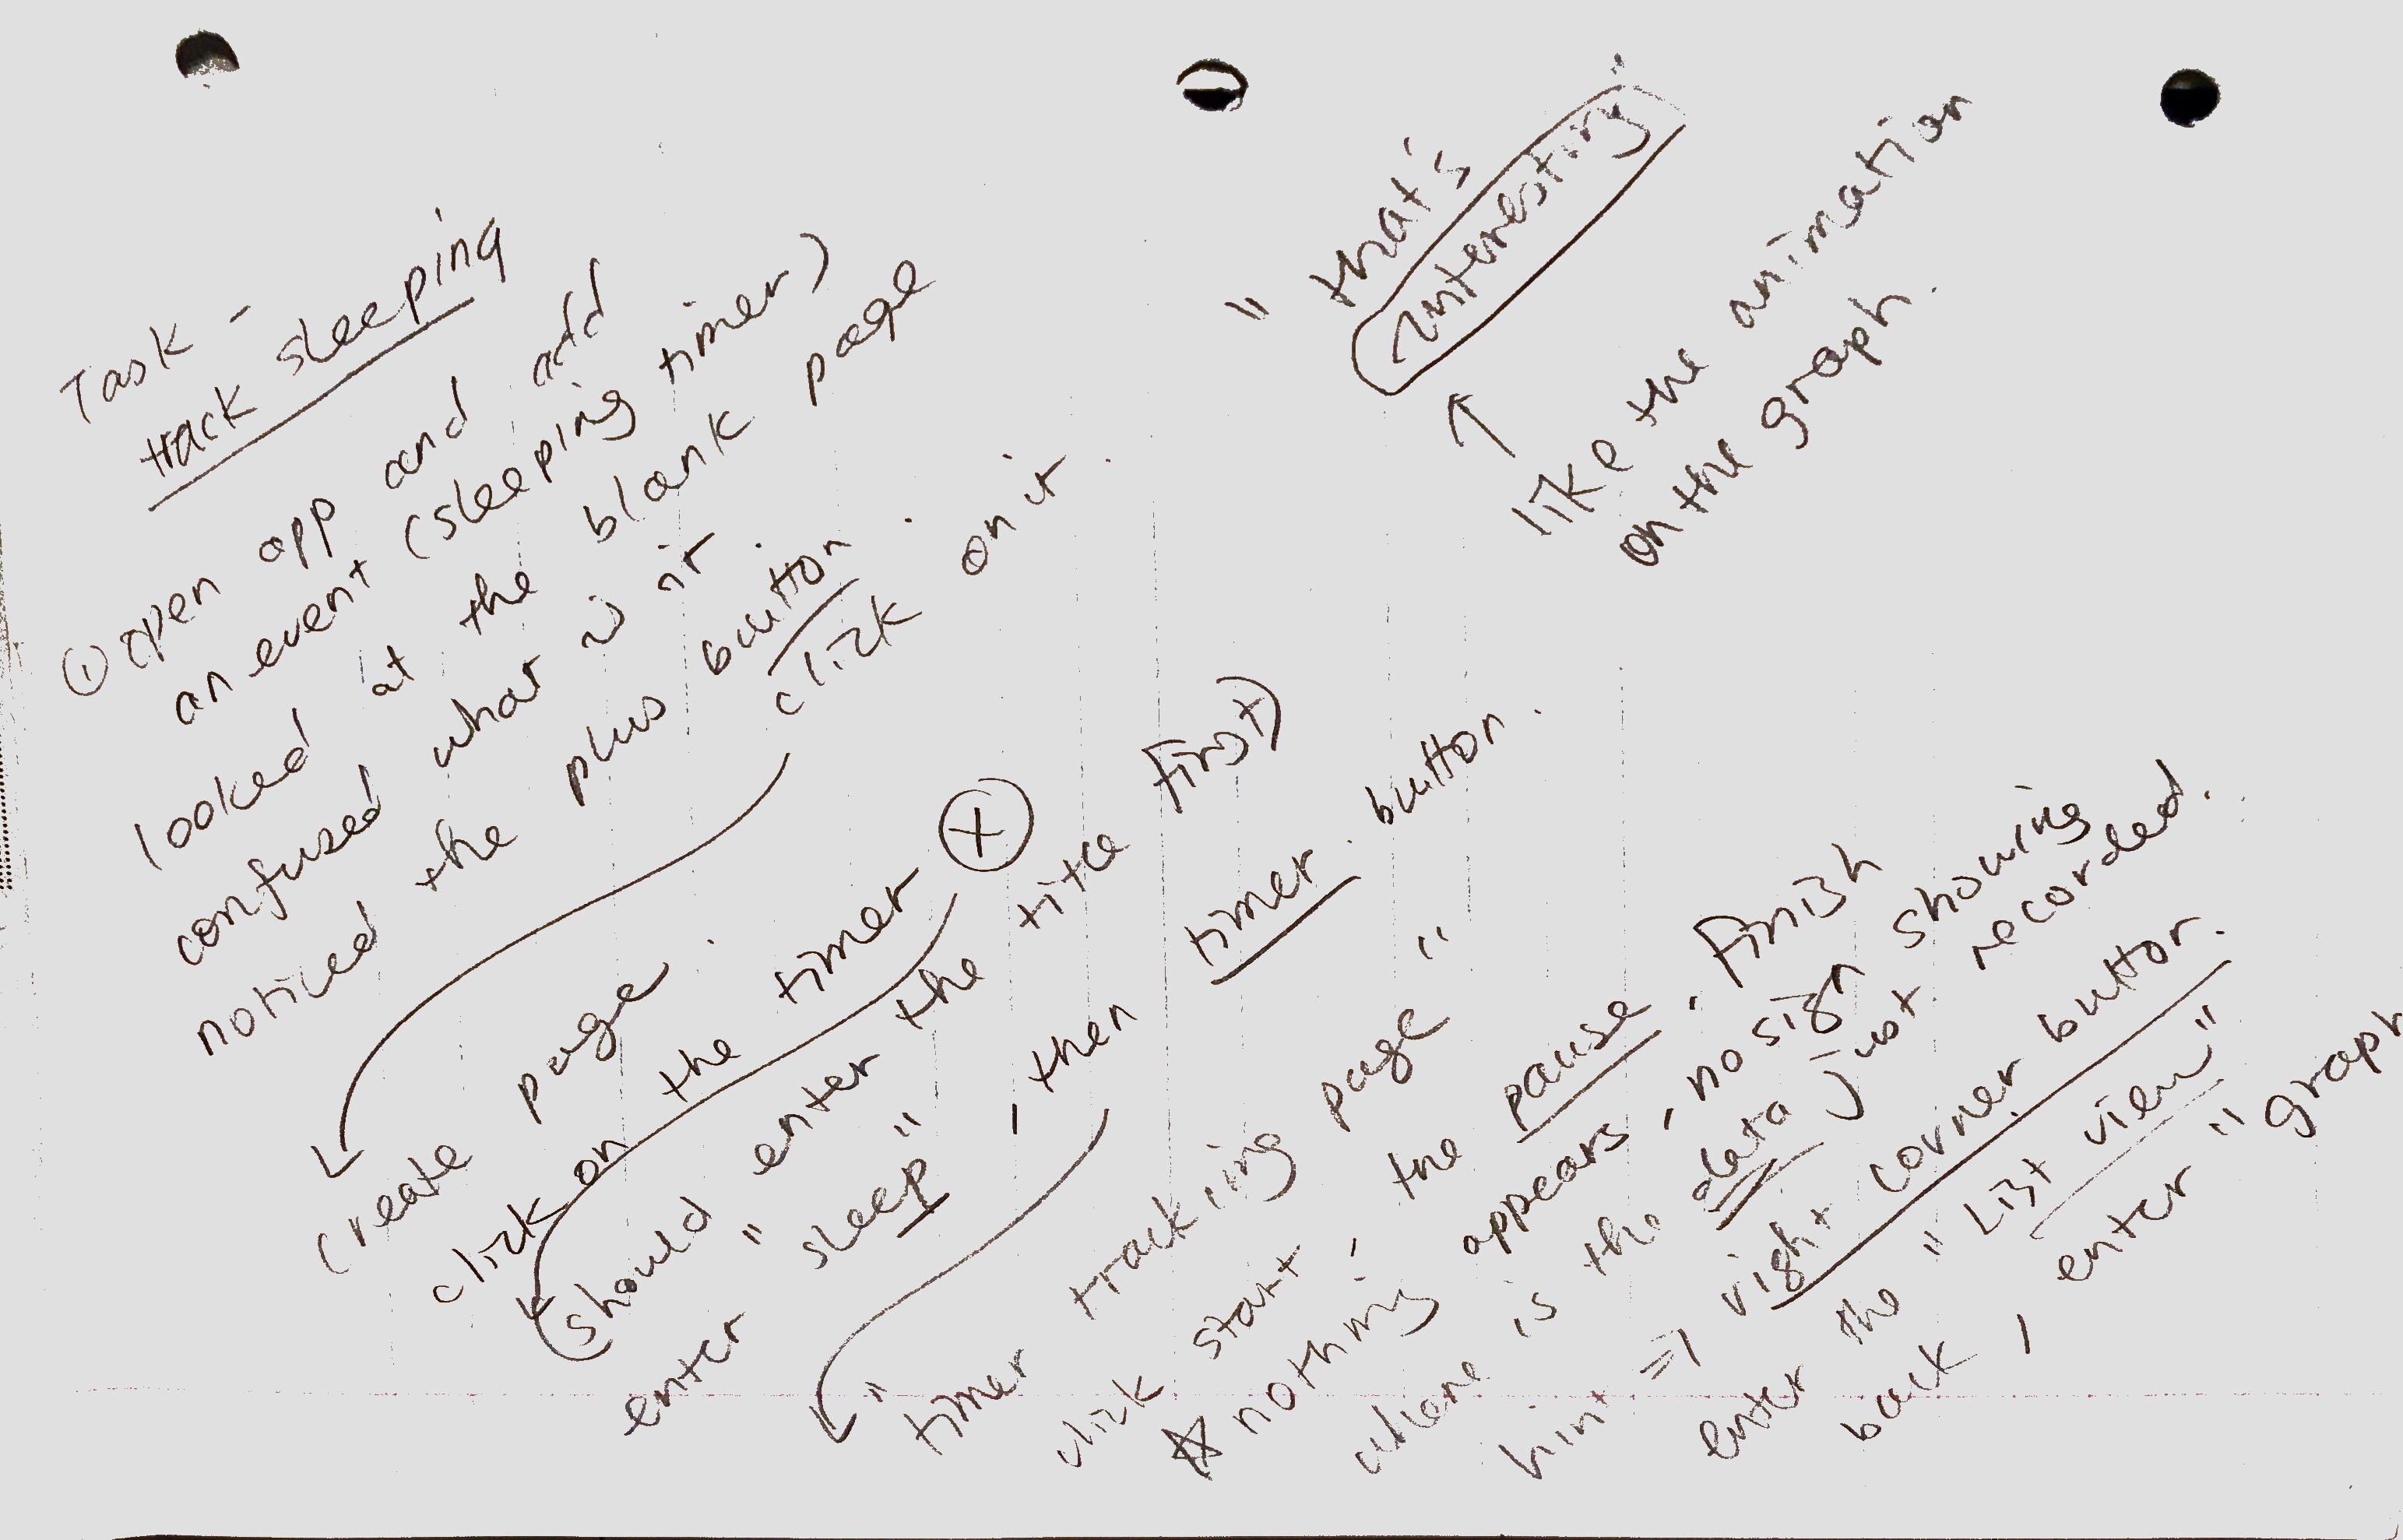 Task -
track sleeping
① open app and add
an event (sleeping timer)
looked at the blank page
confused what is it.
noticed the plus button.
click on it.
create page.
click on the timer Ⓧ
(should enter the title first)
enter "sleep" - then timer. button.
"timer tracking page"
click start - the pause - finish
☆ nothing appears, no sign showing
where is the data just recorded.
hint => right corner button.
enter the "List view"
back, enter "graph
"that's
interesting"
↑
like the animation
on the graph.